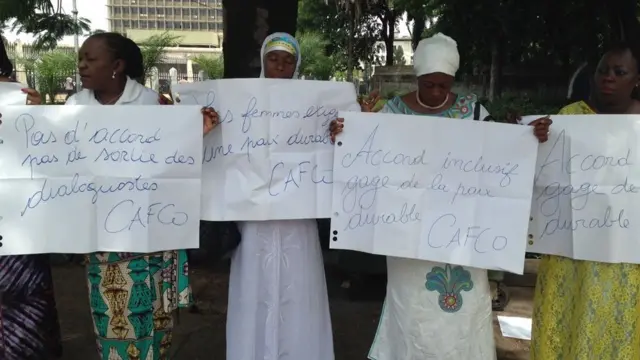 Pas d'accord
pas de sortie des
dialoguistes
CAFCO
femmes
une paix durable
CAFCO
Accord inclusif
gage de la paix
durable
CAFCO
Accord
gage de
durable